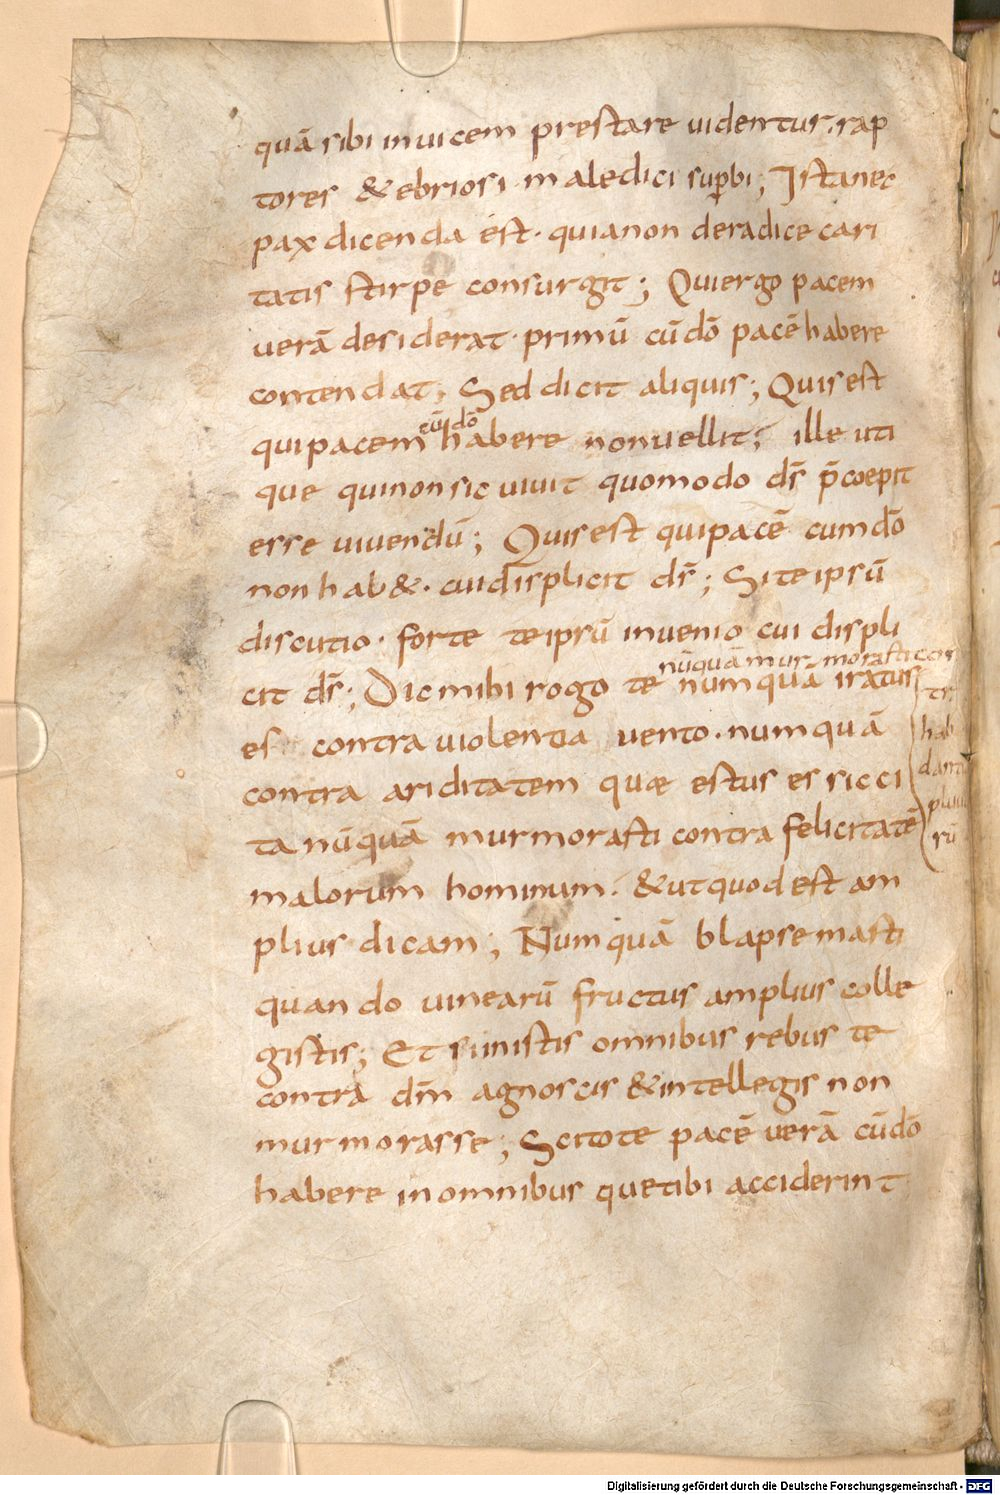 quā sibi inuicem prestare uidentur. rap
tores & ebriosi maledici suꝑbi; Ista nec
pax dicenda est. quia non de radice cari
tatis stirpe consurgit; Qui ergo pacem
uerā desiderat. primū cū dō pacē habere
contendat, Sed dicit aliquis; Quis est
cū dō
qui pacem habere non uellit; ille uti
que qui non sic uiuit quomodo ds̄ p̄coepit
esse uiuendū; Quis est qui pacē cum dō
non hab&. cui displicit ds̄; Si te ipsū
discutio. forte te ipsū inuenio cui displi
nūquā murmorasti
cit ds̄; Dic mihi rogo te numquā iratus
es contra uiolentia uento. numquā
contra ariditatem quæ estus es sicci
ta nūquā murmorasti contra felicitatē
malorum hominum. & ut quod est am
plius dicam; Numquā blapsemasti
quando uinearū fructus amplius colle
gistis; Et si in istis omnibus rebus te
contra dm̄ agnoscis & intellegis non
murmorasse; Scito te pacē uerā cū dō
habere in omnibus que tibi acciderint
hab
rū
Digitalisierung gefördert durch die Deutsche Forschungsgemeinschaft - DFG